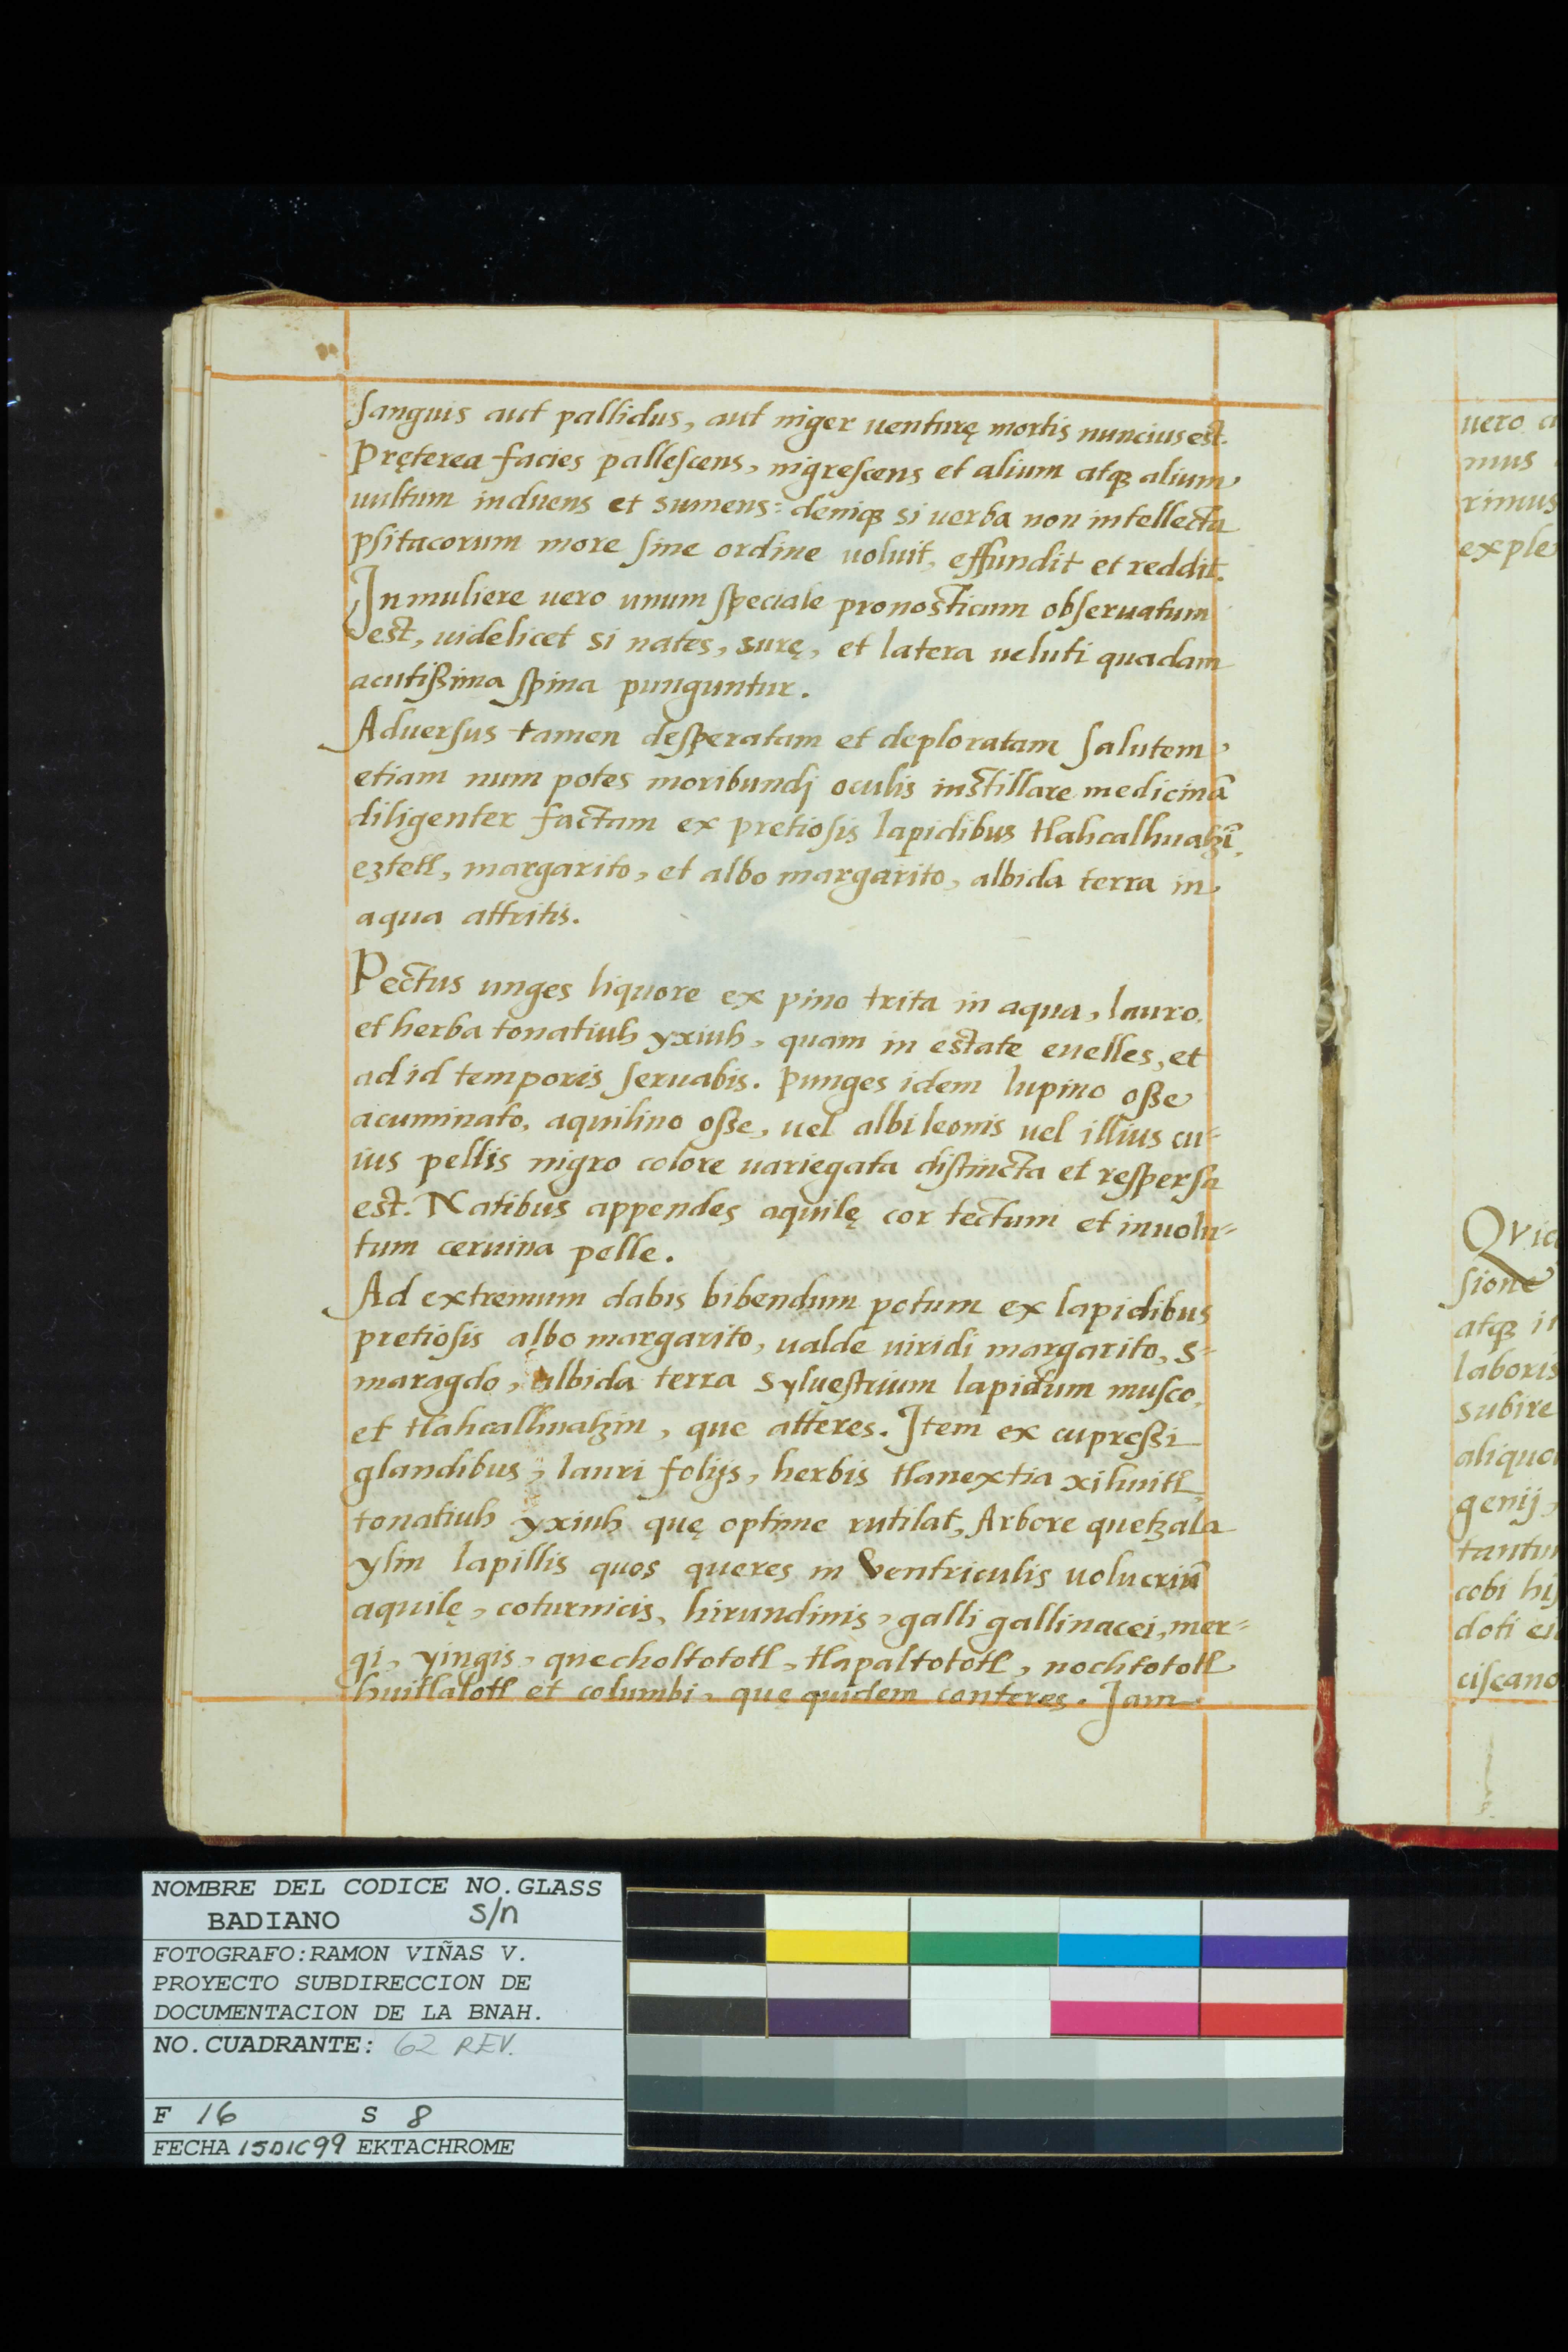 sanguis aut pallidus, aut niger venturę mortis nuncius est.
Pręterea facies pallescens, nigrescens et alium atq3 alium
uultum induens et sumens: deniq3 si uerba non intellecta
psitacorum more sine ordine voluit, effundit et reddit.
In muliere uero unum speciale pronosticum obseruatum
est, uidelicet si nates, surę, et latera veluti quadam
acutißima spina punguntur.
Aduersus tamen desperatam et deploratam salutem,
etiam num potes moribundj oculis instillare medicinā
diligenter factam ex pretiosis lapidibus tlahcalhuatzī,
eztetl, margarito, et albo margarito, albida terra in
aqua attritis.
Pectus unges liquore ex pino trita in aqua, lauro,
et herba tonatiuh yxiuh, quam in estate euelles, et
ad id temporis seruabis. Punges idem lupino oße
acuminato, aquilino oße, uel albi leonis uel illius cu-
ius pellis nigro colore uariegata distincta et respersa
est. Natibus appendes aquilę cor tectum et inuolu-
tum ceruina pelle.
Ad extremum dabis bibendum potum ex lapidibus
pretiosis albo margarito, ualde uiridi margarito, s-
maragdo, albida terra syluestrium lapidum musco,
et tlahcalhuatzin, que atteres. Item ex cupreßi
glandibus, lauri folijs, herbis tlanextia xihuitl,
tonatiuh yxiuh quę optime rutilat, Arbore quetzala
ylin lapillis quos queres in ventriculis uolucriū
aquilę, coturnicis, hirundinis, galli gallinacei, mer-
gi, yingis, quecholtototl, tlapaltototl, nochtototl
huitlalotl et columbi, quę quidem conteres. Iam
uero
mus
rimus
exple
Qvid
sione
atq3
laboris
subire
aliquo
genij,
tantu
cobi hi
doti
ciscano
NOMBRE DEL CODICE NO.GLASS
BADIANO s/n
FOTOGRAFO:RAMON VIÑAS V.
PROYECTO SUBDIRECCION DE
DOCUMENTACION DE LA BNAH.
NO.CUADRANTE: 62 REV.
F 16 S 8
FECHA 15DIC99 EKTACHROME